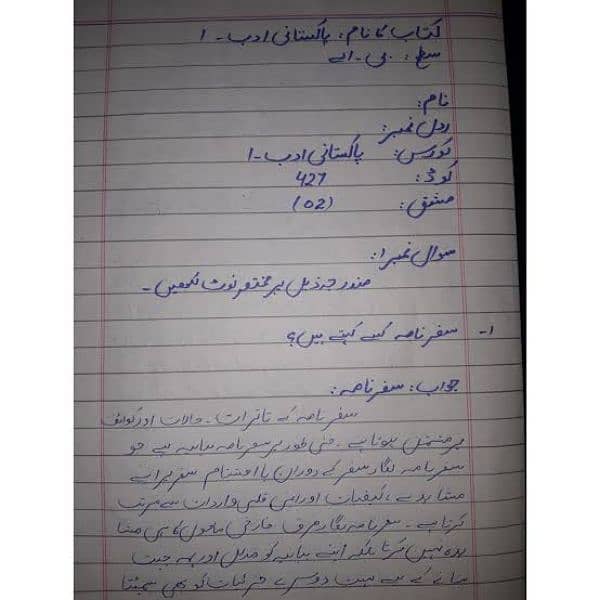 کتاب کا نام: پاکستانی ادب - 1
سطح: بی - اے
نام:
رول نمبر:
کورس: پاکستانی ادب - 1
کوڈ: 427
مشق: (02)
سوال نمبر 1:
مندرجہ ذیل پر مختصر نوٹ لکھیں -
1- سفرنامہ کسے کہتے ہیں؟
جواب: سفر نامہ:
سفر نامہ کے تاثرات - حالات اور کوائف
پر مشتمل ہوتا ہے - فنی طور پر سفرنامہ بیانیہ ہے جو
سفرنامہ نگار سفر کے دوران یا اختتام سفر پر اپنے
مشاہدے، کیفیات اور اپنی قلبی واردات سے مرتب
کرتا ہے - سفرنامہ نگار صرف خارجی ماحول کا ہی مشا
ہدہ نہیں کرتا بلکہ اپنے بیانیہ کو مدلل اور ہمہ جہت
بنانے کے لیے بہت دوسرے جزئیات کو بھی سمیٹتا